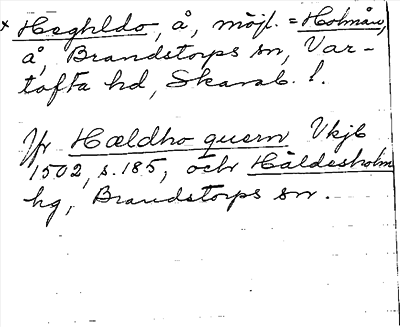 × Heghldo, å, möjl. = Holmån,
å, Brandstorps sn, Var-
tofta hd, Skarab. l.
Jfr Hældho quern Vkjb
1502, s. 185, och Häldesholm
hg, Brandstorps sn.